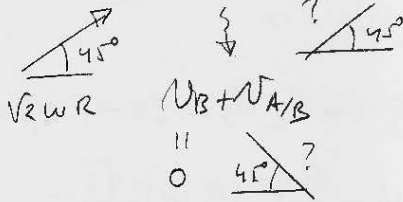 ? 45°
45°
√2 ω R
v_B + v_A/B
=
0 45° ?